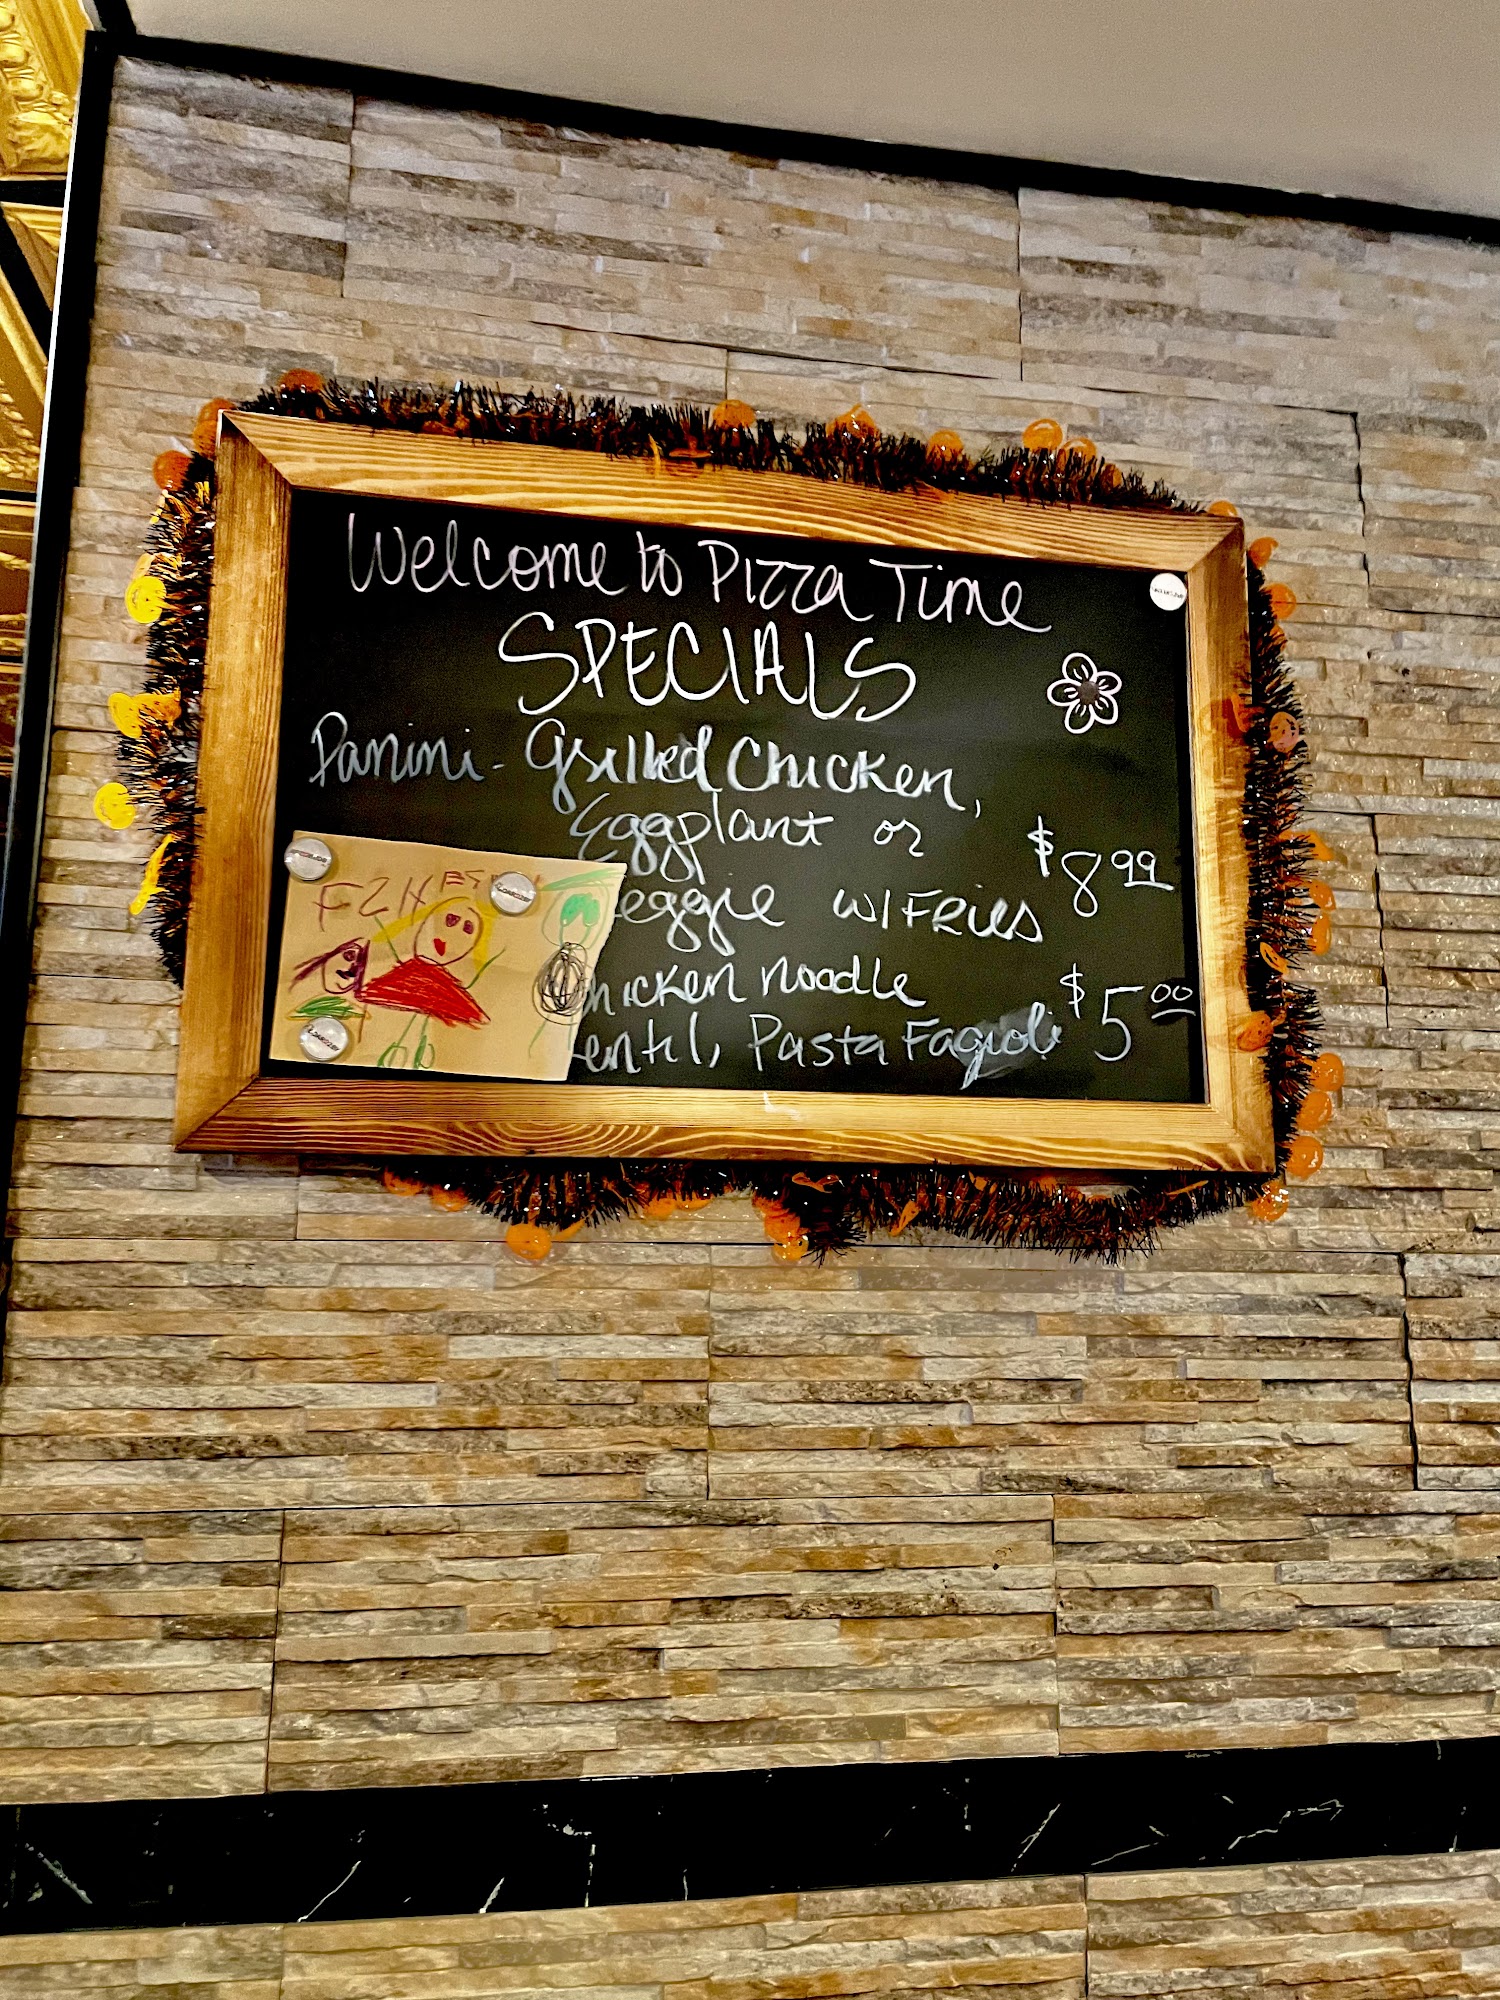 Welcome to Pizza Time
SPECIALS
Panini - Grilled Chicken,
Eggplant or
eggie w/ Fries
$8.99
hicken noodle
entil, Pasta Fagioli
$5.00